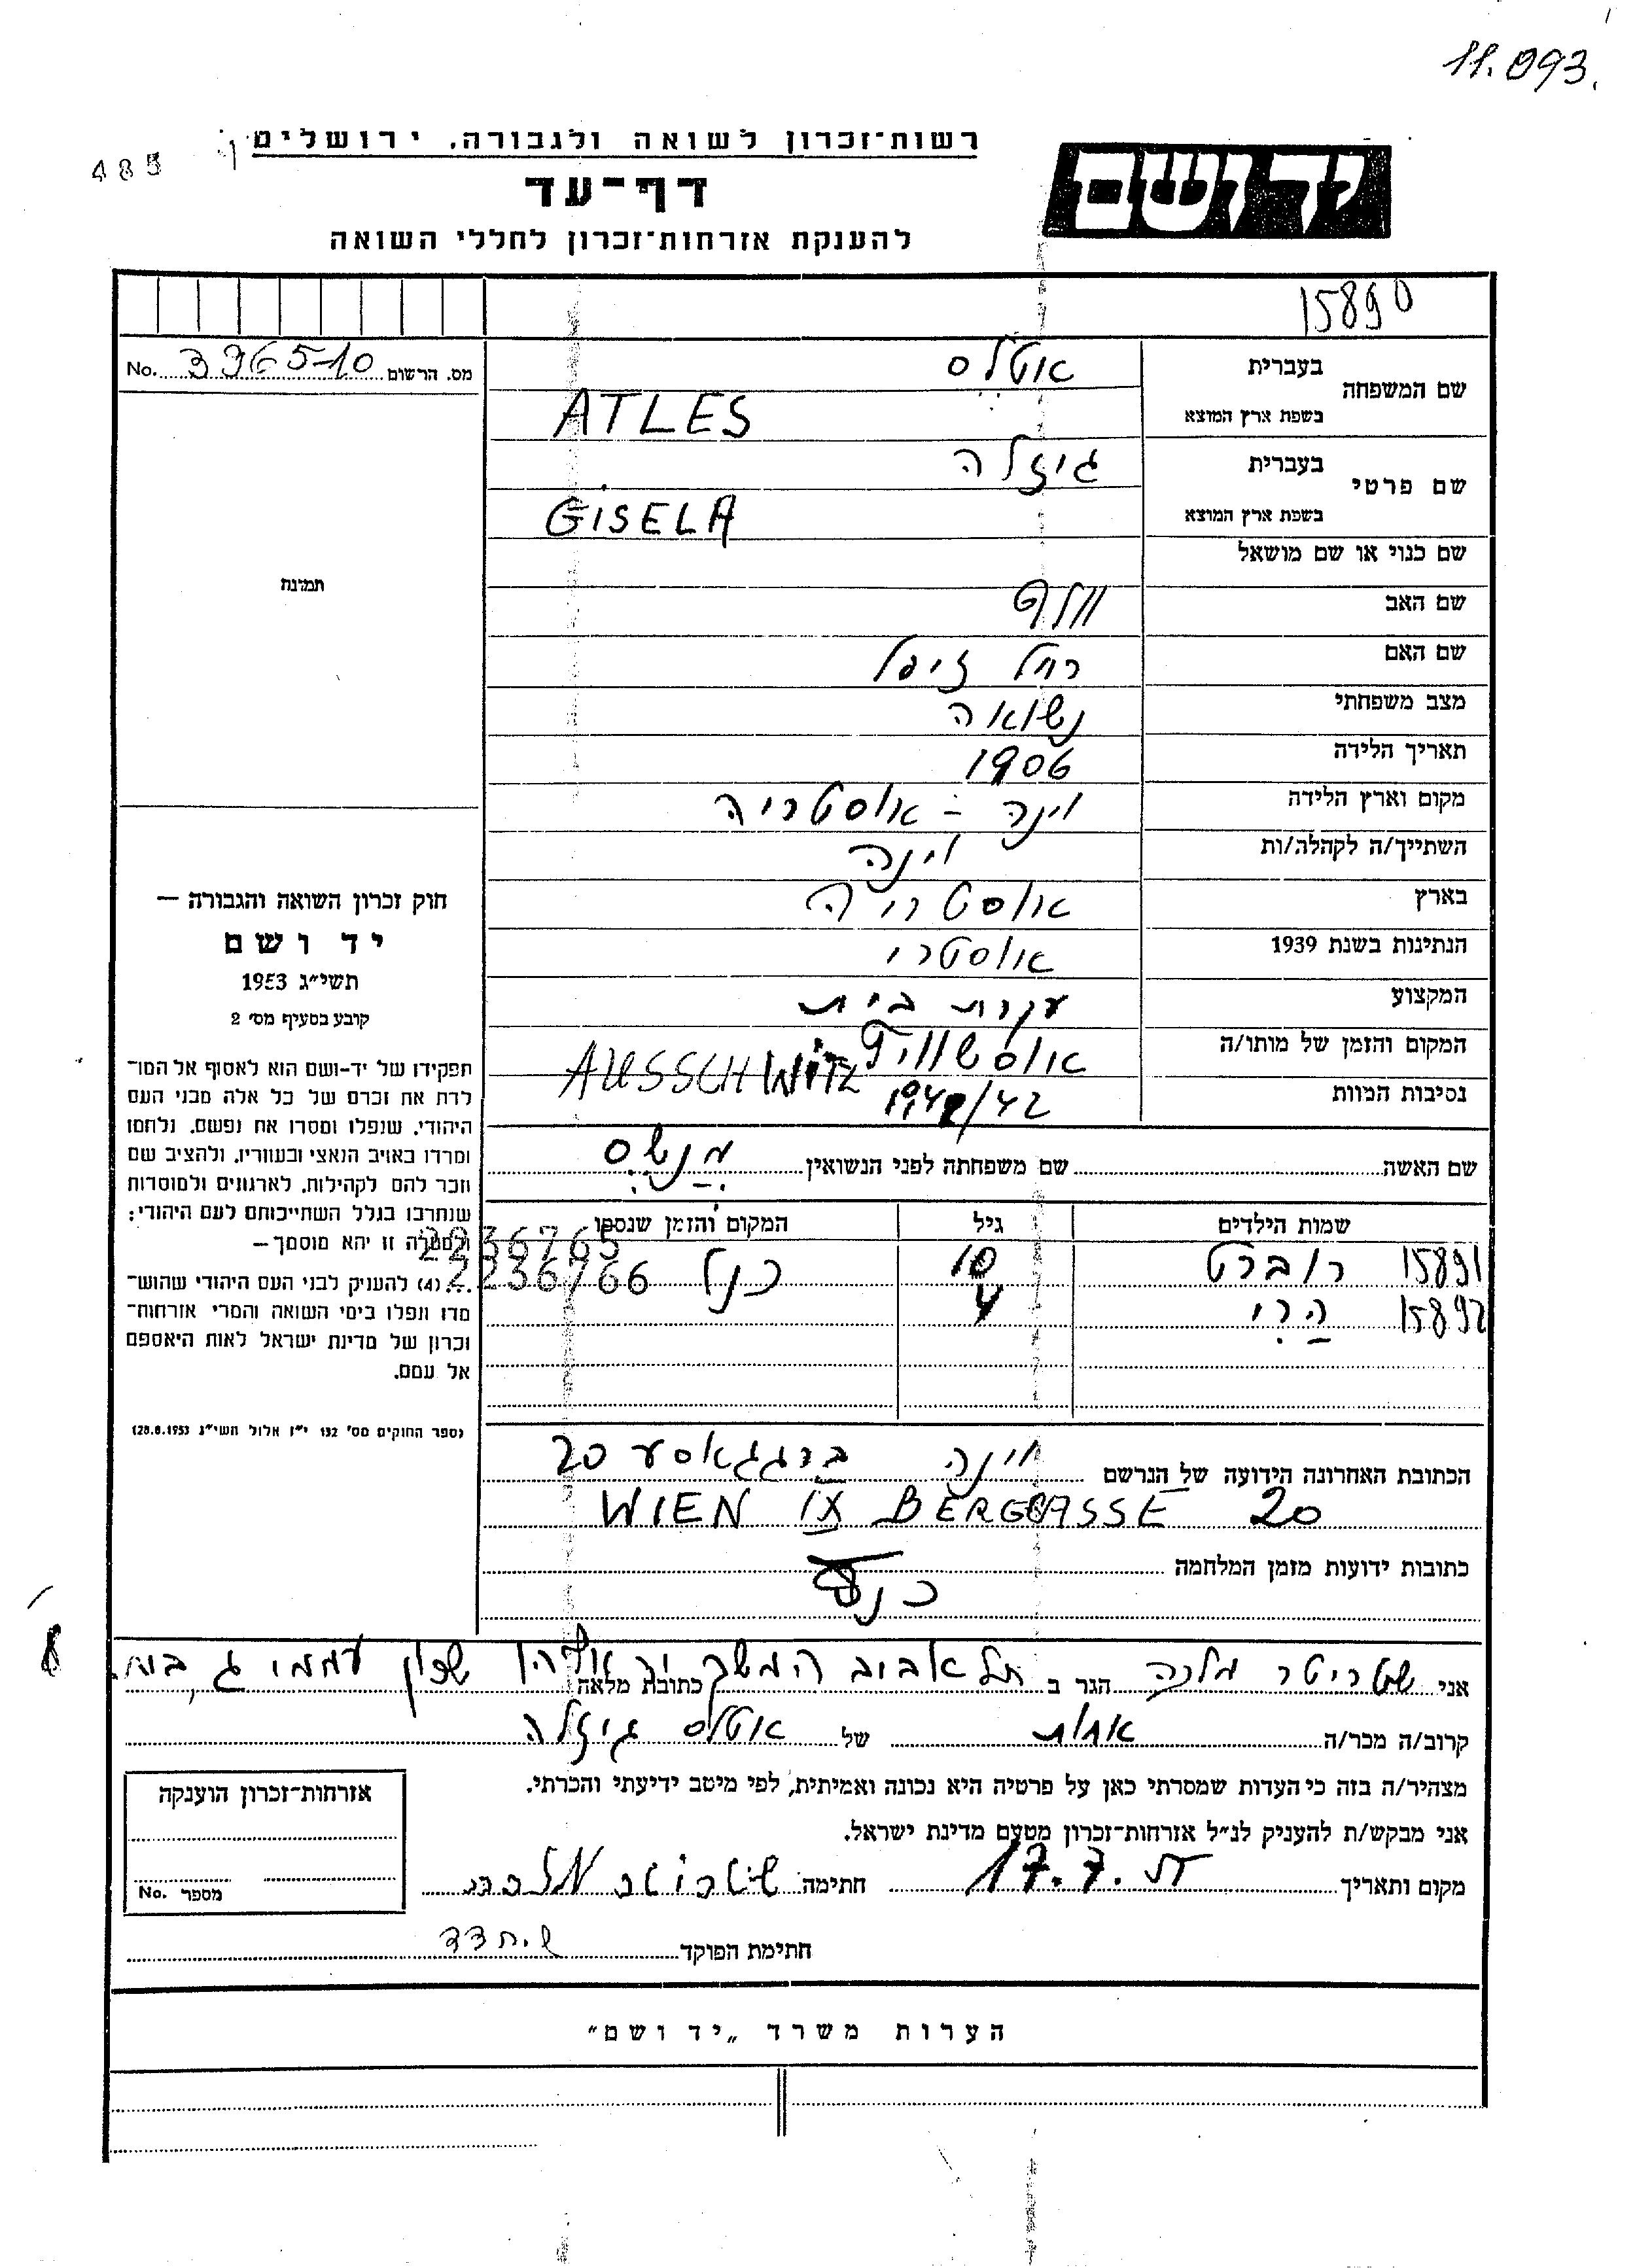 11.093.
485
רשות־זכרון לשואה ולגבורה. ירושלים
ידושם
דף־עד
להענקת אזרחות־זכרון לחללי השואה
15890
מס. הרשום 396510 No.
שם המשפחה
בעברית אטלס
בשפת ארץ המוצא ATLES
שם פרטי
בעברית גיזלה
בשפת ארץ המוצא GISELA
שם כנוי או שם מושאל
תמונה
שם האב וולף
שם האם רחל זיסל
מצב משפחתי נשואה
תאריך הלידה 1906
מקום וארץ הלידה וינה - אוסטריה
השתייך/ה לקהלה/ות וינה
בארץ אוסטריה
הנתינות בשנת 1939 אוסטרי
המקצוע עקרת בית
המקום והזמן של מותו/ה אוסשוויץ AUSSCHWITZ
נסיבות המוות 1942/42
חוק זכרון השואה והגבורה —
יד ושם
תשי״ג 1953
קובע בסעיף מס׳ 2
תפקידו של יד-ושם הוא לאסוף אל המו־
לדת את זכרם של כל אלה מבני העם
היהודי, שנפלו ומסרו את נפשם, נלחמו
ומרדו באויב הנאצי ובעוזריו, ולהציב שם
וזכר להם לקהילות, לארגונים ולמוסדות
שנחרבו בגלל השתייכותם לעם היהודי;
ולמטרה זו יהא מוסמך—
...(4) להעניק לבני העם היהודי שהוש־
מדו ונפלו בימי השואה והמרי אזרחות־
זכרון של מדינת ישראל לאות היאספם
אל עמם.
(ספר החוקים מס׳ 132 י״ז אלול תשי״ג 28.8.1953)
שם האשה שם משפחתה לפני הנשואין מנשס
שמות הילדים גיל המקום והזמן שנספו
2236765
15891 רוברט 10 כנל 2236766
15892 הרי 4
הכתובת האחרונה הידועה של הנרשם וינה ברגגאסע 20
WIEN IX BERGGASSE 20
כתובות ידועות מזמן המלחמה
כנל
אני שטריטר מלכה הגר ב תל אביב כתובת מלאה שכון עממי ג,
קרוב/ה מכר/ה אחות של אטלס גיזלה
מצהיר/ה בזה כי העדות שמסרתי כאן על פרטיה היא נכונה ואמיתית, לפי מיטב ידיעתי והכרתי.
אני מבקש/ת להעניק לנ״ל אזרחות־זכרון מטעם מדינת ישראל.
מקום ותאריך 17.7. חתימה
חתימת הפוקד ש.חדד
אזרחות־זכרון הוענקה
מספר No.
הערות משרד „יד ושם״